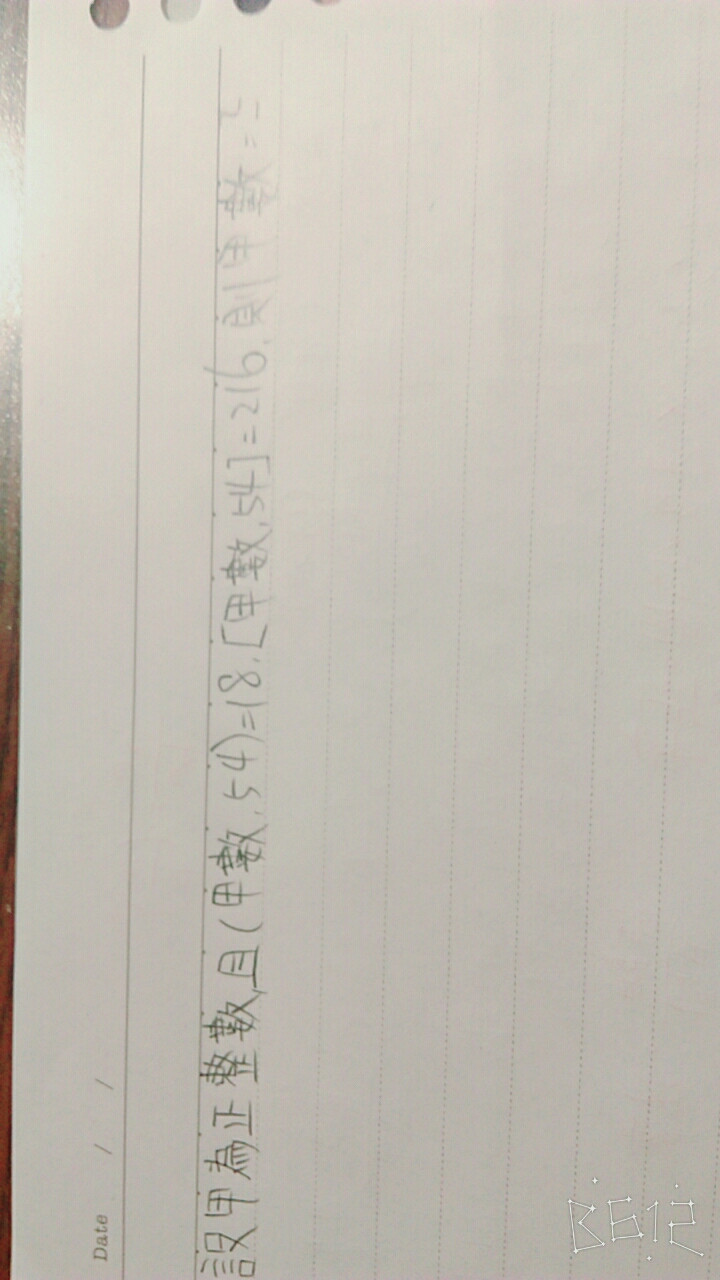 Date / /
設甲為正整數,且(甲數,54)=18,[甲數,54]=216,則甲數=?
B612